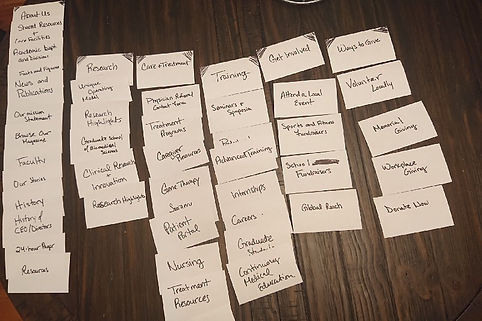 About Us
Shared Resources +
Core Facilities
Academic Dept
and Divisions
Facts and Figures
News and
Publications
Our mission
Statement
Browse Our
Magazine
Faculty
Our Stories
History
History of
CEO/Directors
24-hour
Resources
Research
Unique
Operating
Model
Research
Highlights
Graduate School
of Biomedical
Sciences
Clinical Research
Innovation
Research Highlights
Care & Treatment
Physician Referral
Contact Form
Treatment
Programs
Caregiver
Resources
Gene Therapy
Patient
Portal
Nursing
Treatment
Resources
Training
Seminars +
Symposia
Advanced Training
Internships
Careers
Graduate
Continuing
Medical
Education
Get Involved
Attend a Local
Event
Sports and Fitness
Fundraisers
School
Fundraisers
Global Reach
Ways to Give
Volunteer
Locally
Memorial
Giving
Workplace
Giving
Donate Now